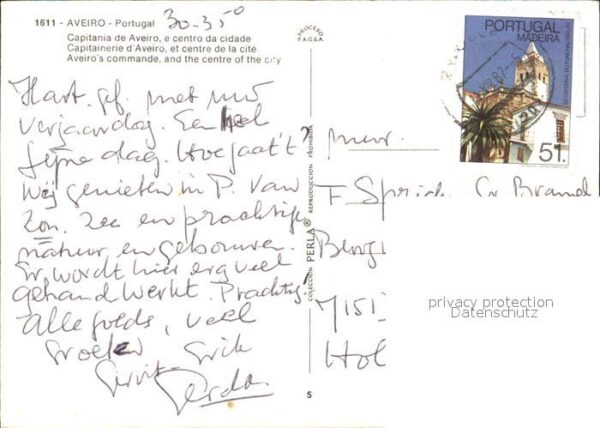 1611 - AVEIRO - Portugal 30-35⁰
Capitania de Aveiro, e centro da cidade
Capitainerie d'Aveiro, et centre de la cité
Aveiro's commande, and the centre of the city
Hart. gef. met uw
verjaardag. Een hele
fijne dag. Hoe gaat 't?
Wij genieten in P. van
Zon, zee en prachtige
natuur en gebouwen.
Er wordt hier erg veel
gehandwerkt. Prachtig.
Alle goeds, veel
Groeten
Gerda
PROCESO
P.A.G.S.A.
COLECCION PERLA® REPRODUCCION PROHIBIDA
5
PORTUGAL
MADEIRA
51.
mevr.
F. Sprick
privacy protection
Datenschutz